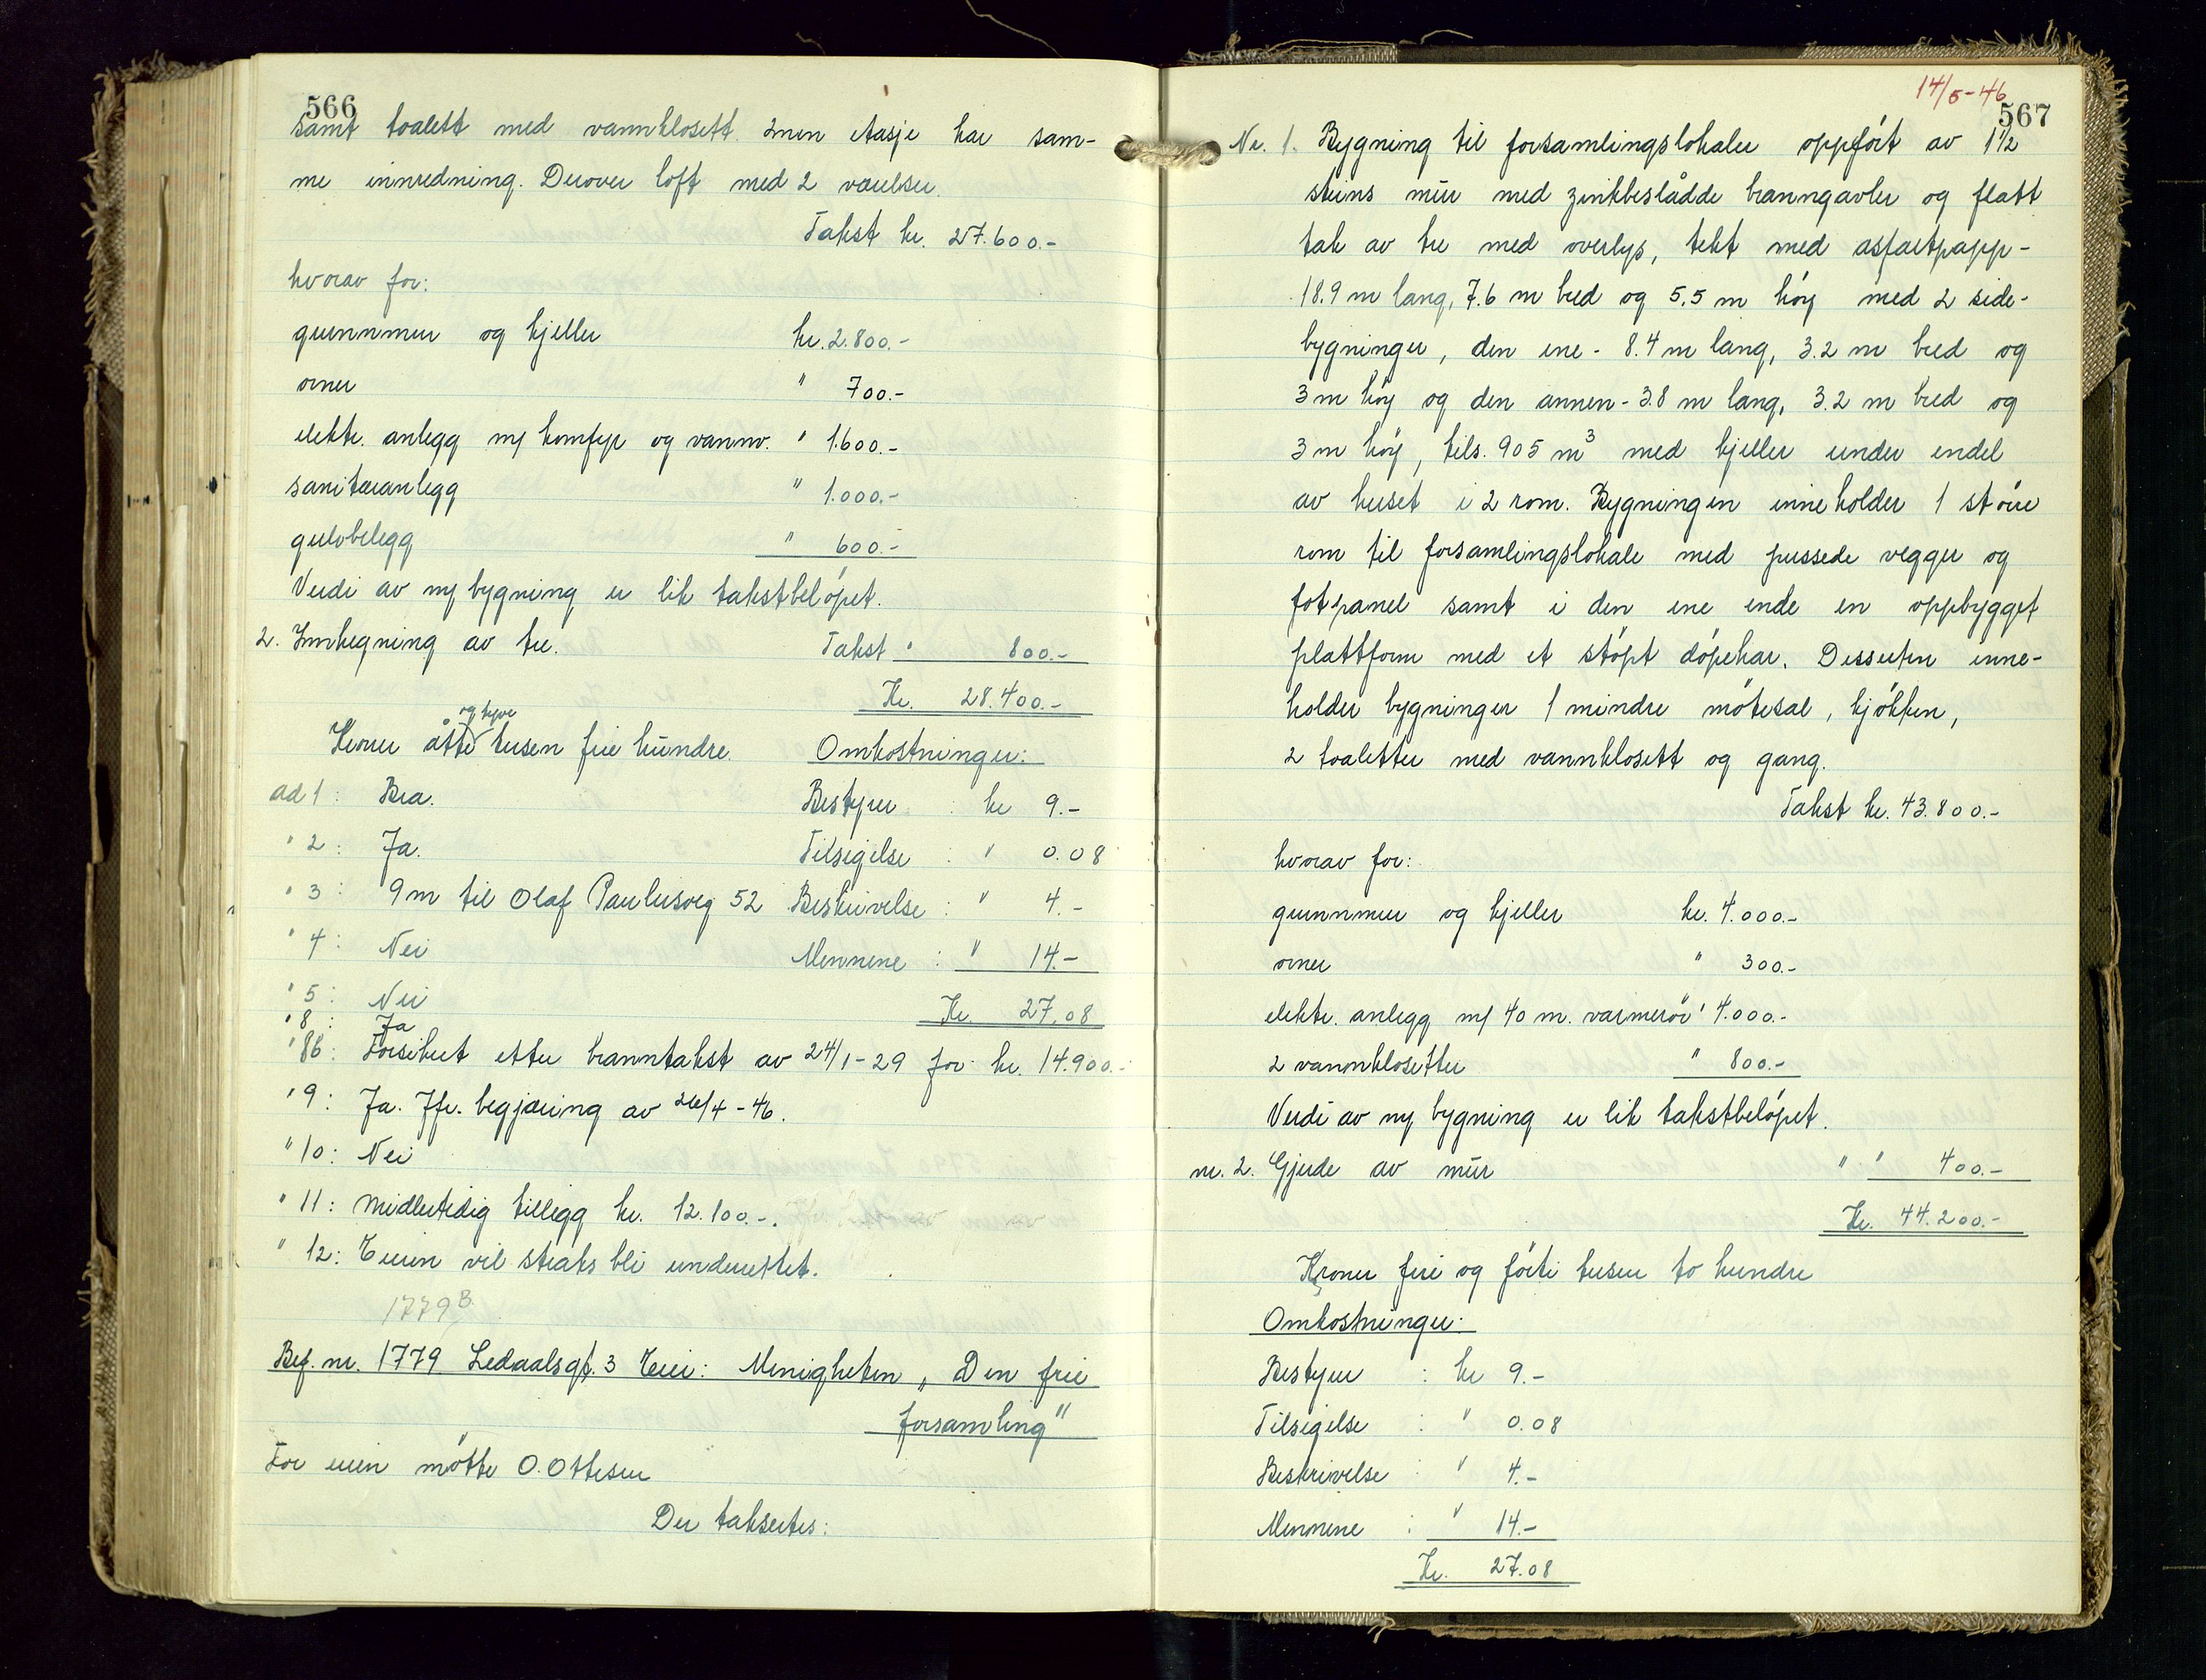 566
samt toalett med vannklosett. 2nen etasje har sam-
me innredning. Derover loft med 2 værelser.
Takst kr. 27.600.-
hvorav for:
grunnmur og kjeller kr. 2.800.-
ovner " 700.-
elektr. anlegg m/ komfyr og vannv. " 1.600.-
sanitæranlegg " 1.000.-
gulvbelegg " 600.-
Verdi av ny bygning er lik takstbeløpet.
2. Innhegning av tre. Takst " 800.-
Kr. 28.400.-
og tyve
Kroner åtte tusen fire hundre. Omkostninger:
ad 1: Bra. Bestyrer : kr 9.-
" 2: Ja. Tilsigelse : " 0.08
" 3: 9m til Olaf Paulusveg 52 Beskrivelse : " 4.-
" 4: Nei Mennene : " 14.-
" 5: Nei Kr. 27.08
" 8: Ja
" 8b: Forsikret etter branntakst av 24/1-29 for kr. 14.900.-
" 9: Ja. Jfr. begjæring av 26/4-46.
" 10: Nei
" 11: Midlertidig tillegg kr. 12.100.-.
" 12: Eieren vil straks bli underrettet.
1779B
Bef. nr. 1779 Ledaalsgt. 3 Eier: Menigheten „Den frie
forsamling"
For eieren møtte O. Ottesen
Der takseertes:
14/5-46
567
Nr. 1. Bygning til forsamlingslokaler oppført av 1½
steins mur med zinkbeslådde branngavler og flatt
tak av tre med overlys, tekt med asfaltpapp-
18.9 m lang, 7.6 m bred og 5.5 m høy med 2 side-
bygninger, den ene - 8.4 m lang, 3.2 m bred og
3 m høy og den annen - 3.8 m lang, 3.2 m bred og
3 m høy, tils. 905 m³ med kjeller under endel
av huset i 2 rom. Bygningen inneholder 1 større
rom til forsamlingslokale med pussede vegger og
fotpanel samt i den ene ende en oppbygget
plattform med et støpt døpekar. Dessuten inne-
holder bygninger 1 mindre møtesal, kjøkken,
2 toaletter med vannklosett og gang.
Takst kr. 43.800.-
hvorav for:
grunnmur og kjeller kr. 4.000.-
ovner " 300.-
elektr. anlegg m/ 40 m. varmerør " 4.000.-
2 vannklosetter " 800.-
Verdi av ny bygning er lik takstbeløpet.
nr. 2. Gjerde av mur " " 400.-
Kr. 44.200.-
Kroner fire og førti tusen to hundre
Omkostninger:
Bestyrer : kr 9.-
Tilsigelse : " 0.08
Beskrivelse : " 4.-
Mennene : " 14.-
Kr. 27.08